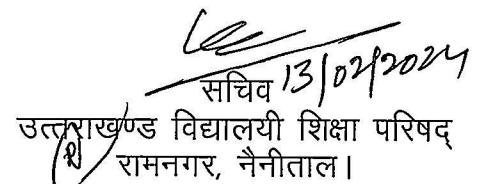 सचिव 13/02/2024
उत्तराखण्ड विद्यालयी शिक्षा परिषद्
रामनगर, नैनीताल।